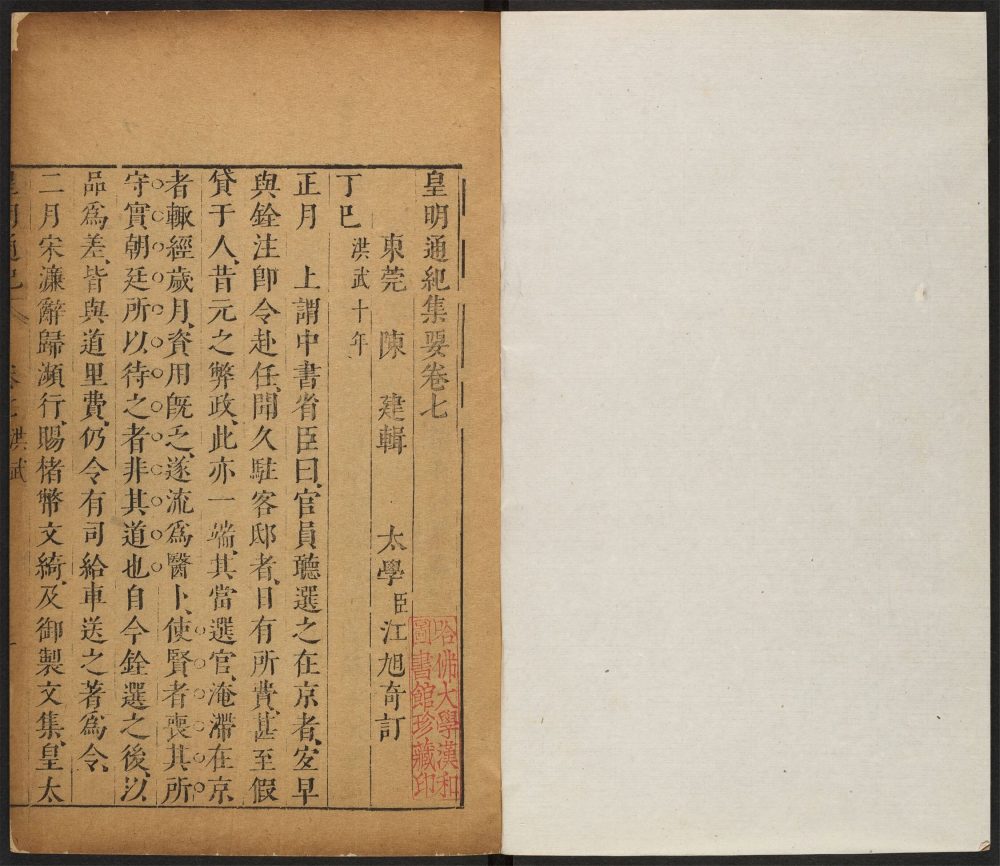 皇明通紀集要卷七
東莞 陳 建輯 太學臣江旭奇訂
丁巳 洪武十年
正月 上謂中書省臣曰、官員聽選之在京者、宜早
與銓注卽令赴任、聞久駐客邸者、日有所費、甚至假
貸于人、昔元之弊政、此亦一端、其當選官、淹滯在京
者輒經歲月、資用旣乏、遂流爲醫卜、使賢者喪其所
守實朝廷所以待之者非其道也自今銓選之後、以
品爲差、皆與道里費、仍令有司給車送之著爲令、
二月宋濂辭歸瀕行、賜楮幣文綺、及御製文集、皇太
皇明通紀 卷七 洪武
哈佛大學漢和
圖書館珍藏印